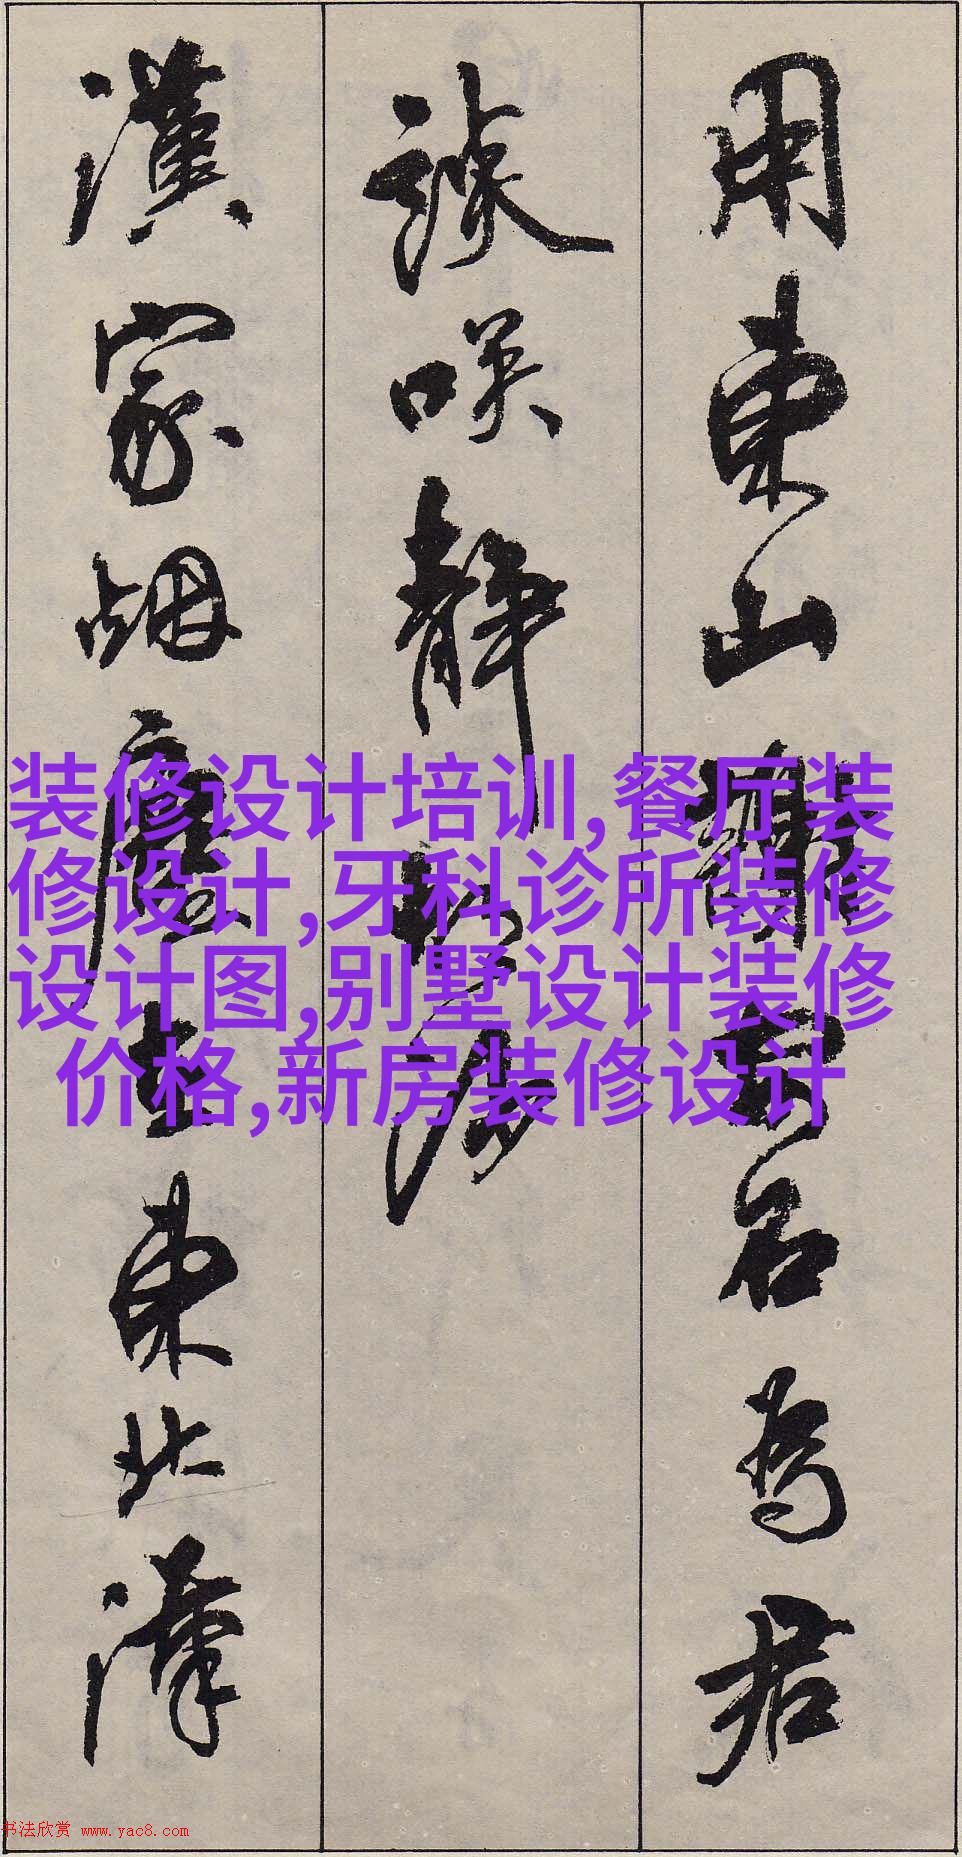 用東山謝安石為君
談咲靜胡沙
漢家烟塵在東北漢
装修设计培训,餐厅装
修设计,牙科诊所装修
设计图,别墅设计装修
价格,新房装修设计
书法欣赏 www.yac8.com